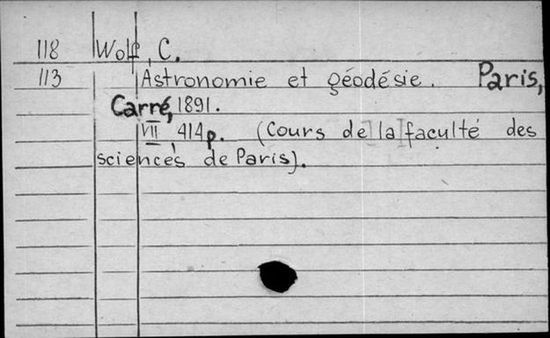 118 Wolf, C.
113 Astronomie et géodésie. Paris,
Carré, 1891.
VII, 414p. (Cours de la faculté des
sciences de Paris).